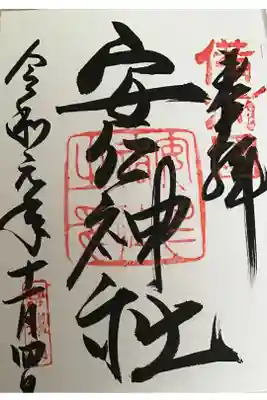 奉拝
安仁神社
令和元年十一月四日